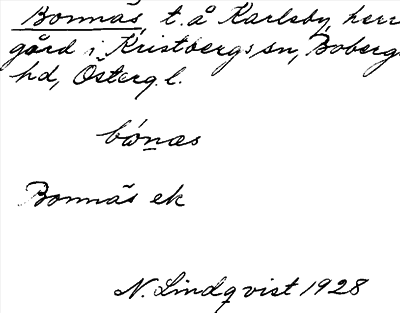 Bonnäs, t. å Karlsby, herr
gård i Kristbergs sn, Boberg
hd, Österg.l.
bónas
Bonnäs ek
N. Lindqvist 1928